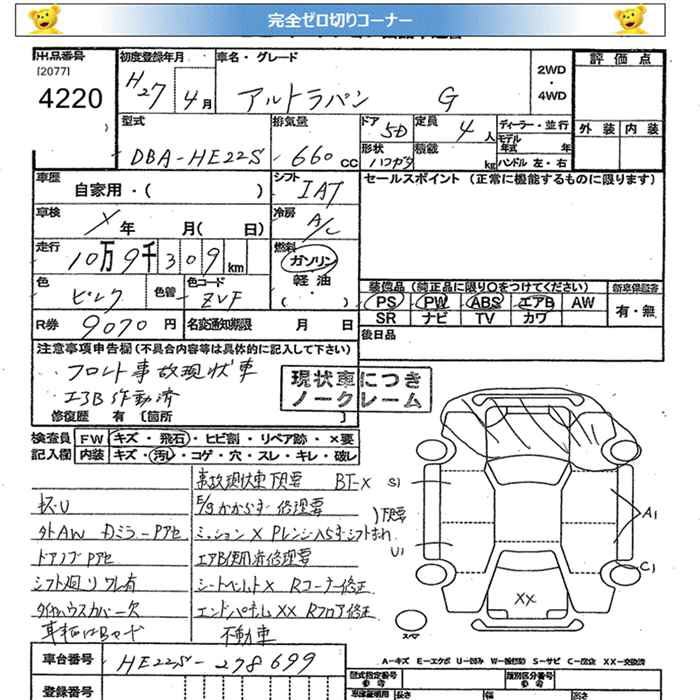 完全ゼロ切りコーナー
出品番号
[2077]
4220
初度登録年月
H27
4月
車名・グレード
アルトラパン G
2WD
・
4WD
評価点
外装 内装
型式
DBA-HE22S
排気量
660cc
ドア
5D
定員
4人
形状
ハコガタ
積載
kg
ディーラー・並行
モデル年式 年
ハンドル 左・右
車歴
自家用・( )
シフト
IAT
セールスポイント (正常に機能するものに限ります)
車検
X年 月( 日)
冷房
A/C
走行
10万9千309km
燃料
ガソリン
軽油
・
( )
色
ピンク
色替
色コード
ZVF
装備品 (純正品に限り○をつけてください)
PS PW ABS エアB AW
SR ナビ TV カワ
新車保証書
有・無
R券 9070円
名変通知期限 月 日
後日品
注意事項申告欄 (不具合内容等は具体的に記入して下さい)
フロント事故現状車
エアB作動済
修復歴 有 [箇所 ]
現状車につき
ノークレーム
検査員
記入欄
FW キズ・飛石・ヒビ割・リペア跡・×要
内装 キズ・汚レ・コゲ・穴・スレ・キレ・破レ
事故現状車下廻要 BT-X
E/gかからず 修理要
外AW Dミラーアセ
ドアノブアセ
エアB使用済修理要
シートベルトX Rコーナー修正
エンドパネルXX Rフロア修正
タイヤハウスカバー欠
車輌はBヤード
不動車
S1
U1
A1
C1
XX
スペア
A-キズ E-エクボ U-凹み W-補修跡 S-サビ C-腐食 XX-交換済
車台番号 HE22S-278699
登録番号
型式指定番号
類別区分番号
長さ
幅
高さ